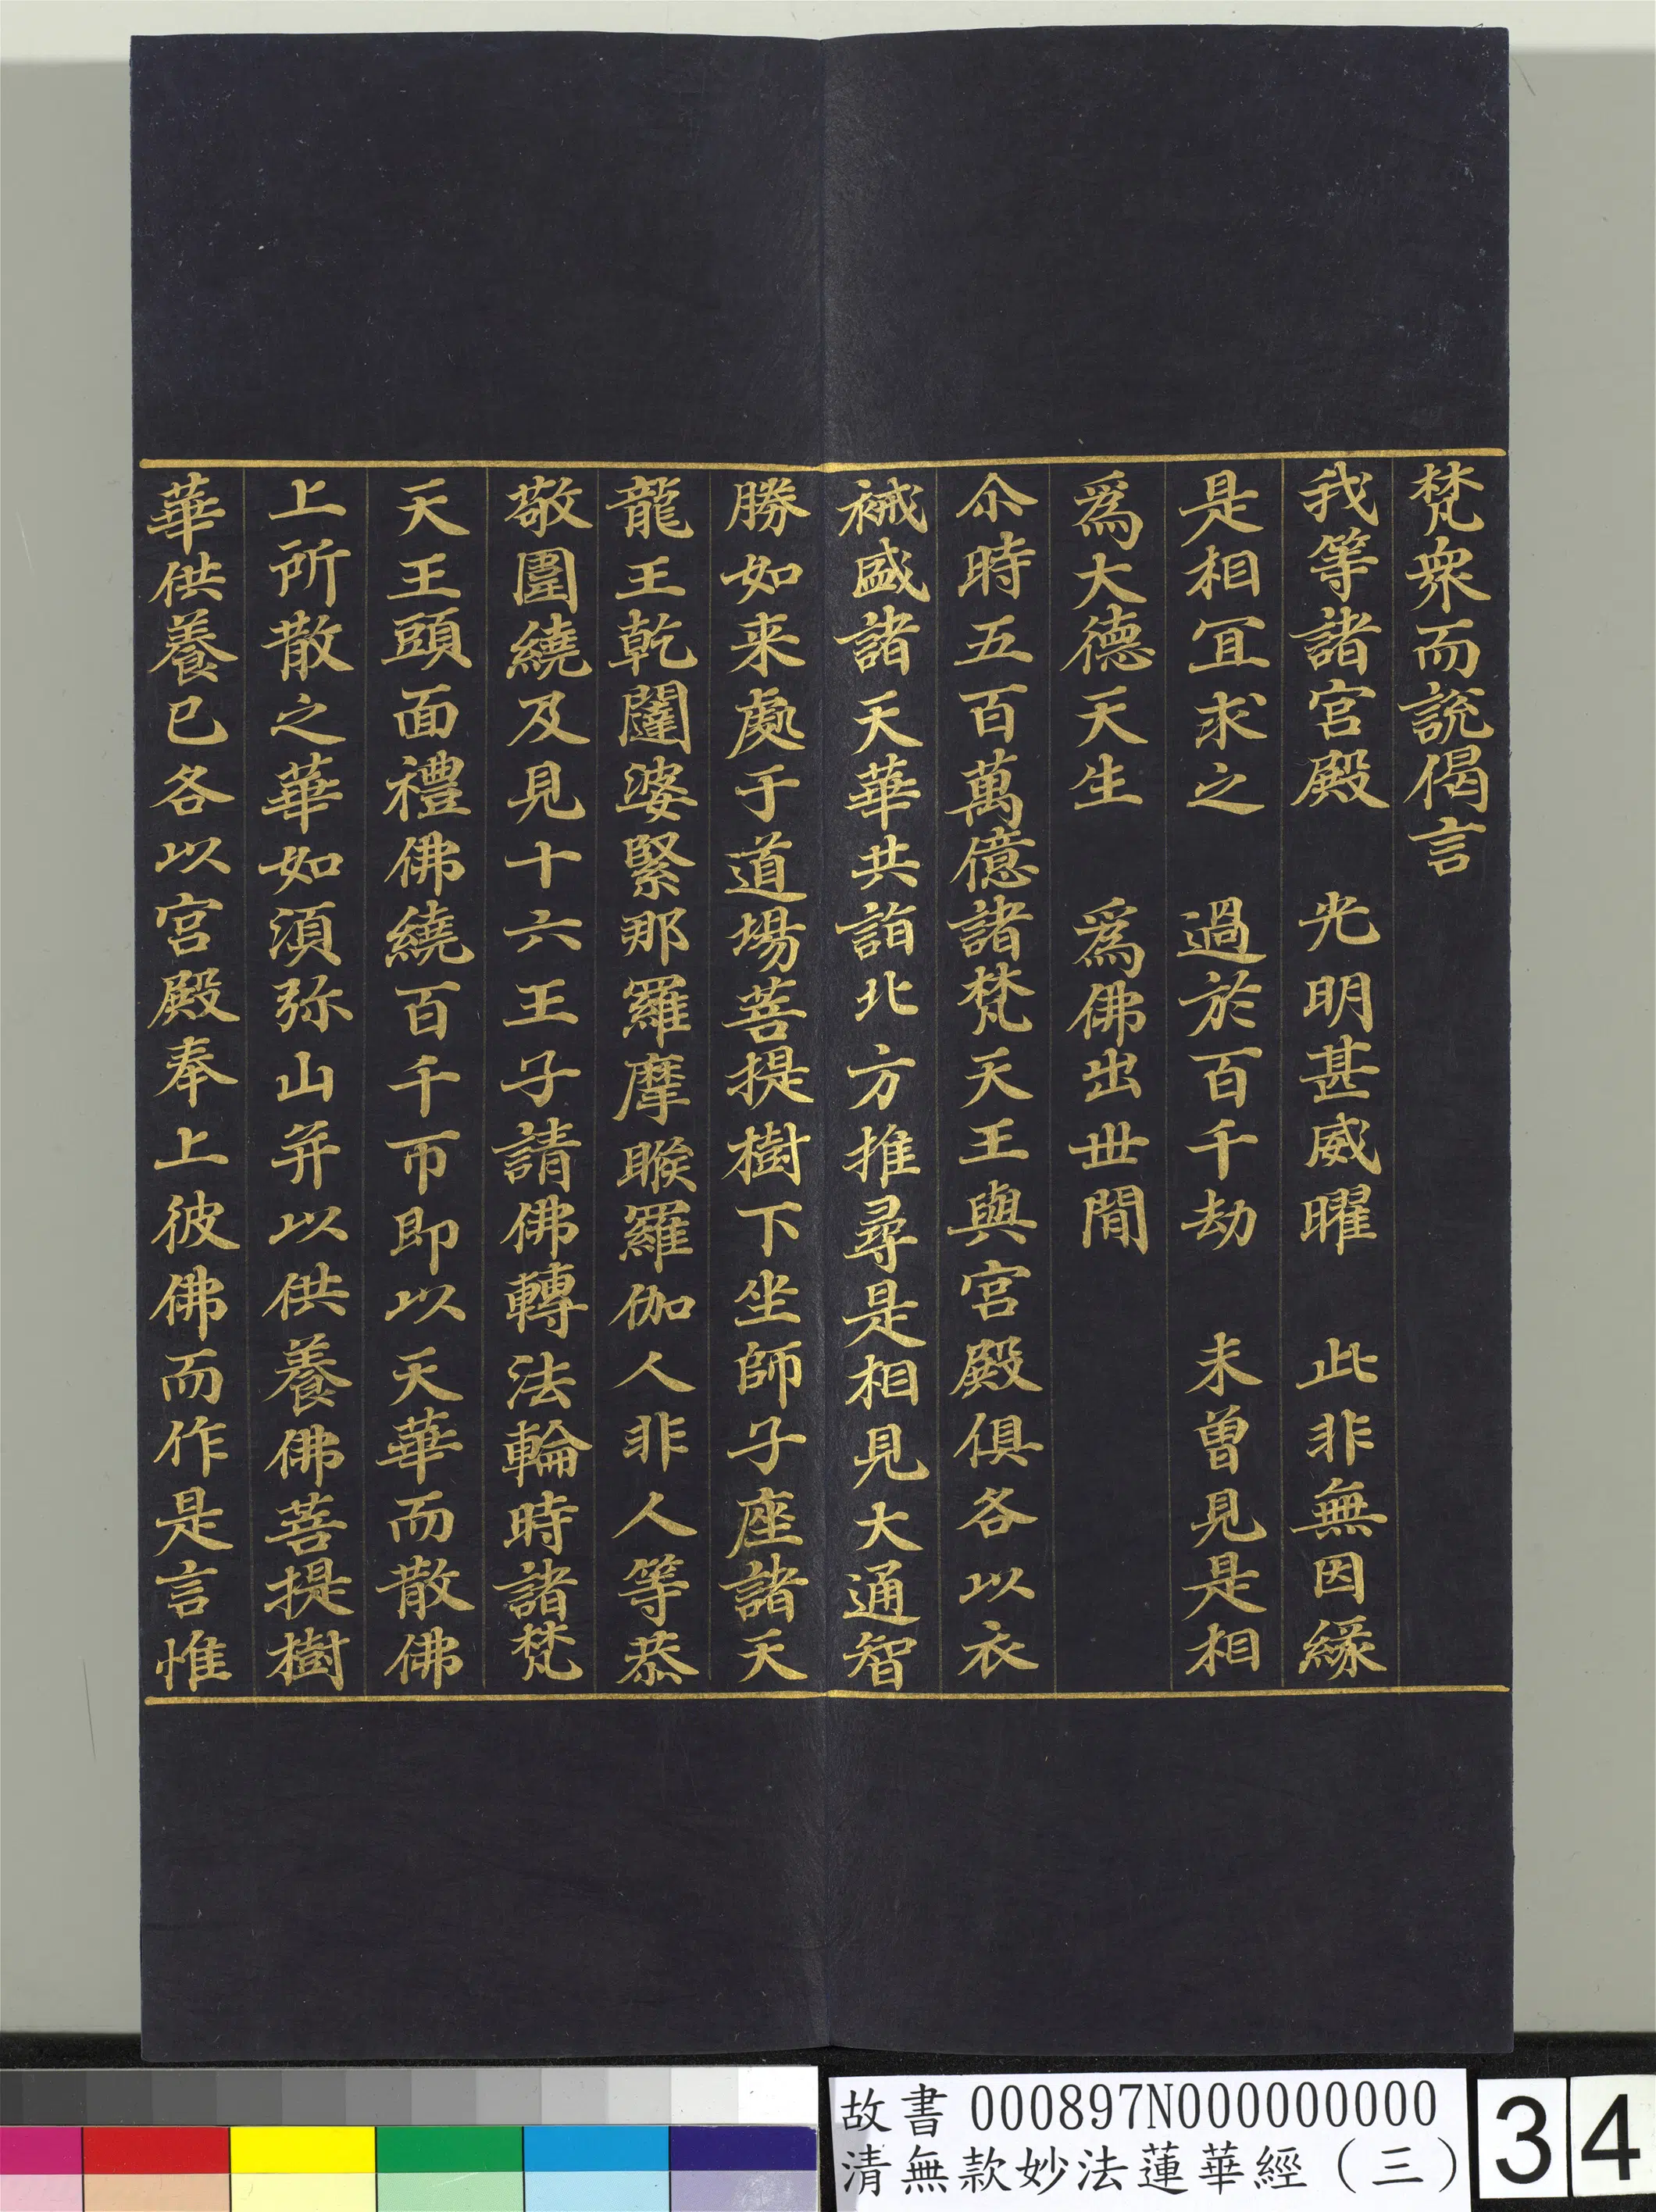 梵衆而說偈言
我等諸宮殿　光明甚威曜　此非無因緣
是相冝求之　過於百千劫　未曾見是相
爲大德天生　爲佛出世閒
尒時五百萬億諸梵天王與宮殿俱各以衣
祴盛諸天華共詣北方推尋是相見大通智
勝如来處于道場菩提樹下坐師子座諸天
龍王乾闥婆緊那羅摩睺羅伽人非人等恭
敬圍繞及見十六王子請佛轉法輪時諸梵
天王頭面禮佛繞百千帀即以天華而散佛
上所散之華如湏弥山并以供養佛菩提樹
華供養已各以宮殿奉上彼佛而作是言惟
故書 000897N000000000
清無款妙法蓮華經（三）
34